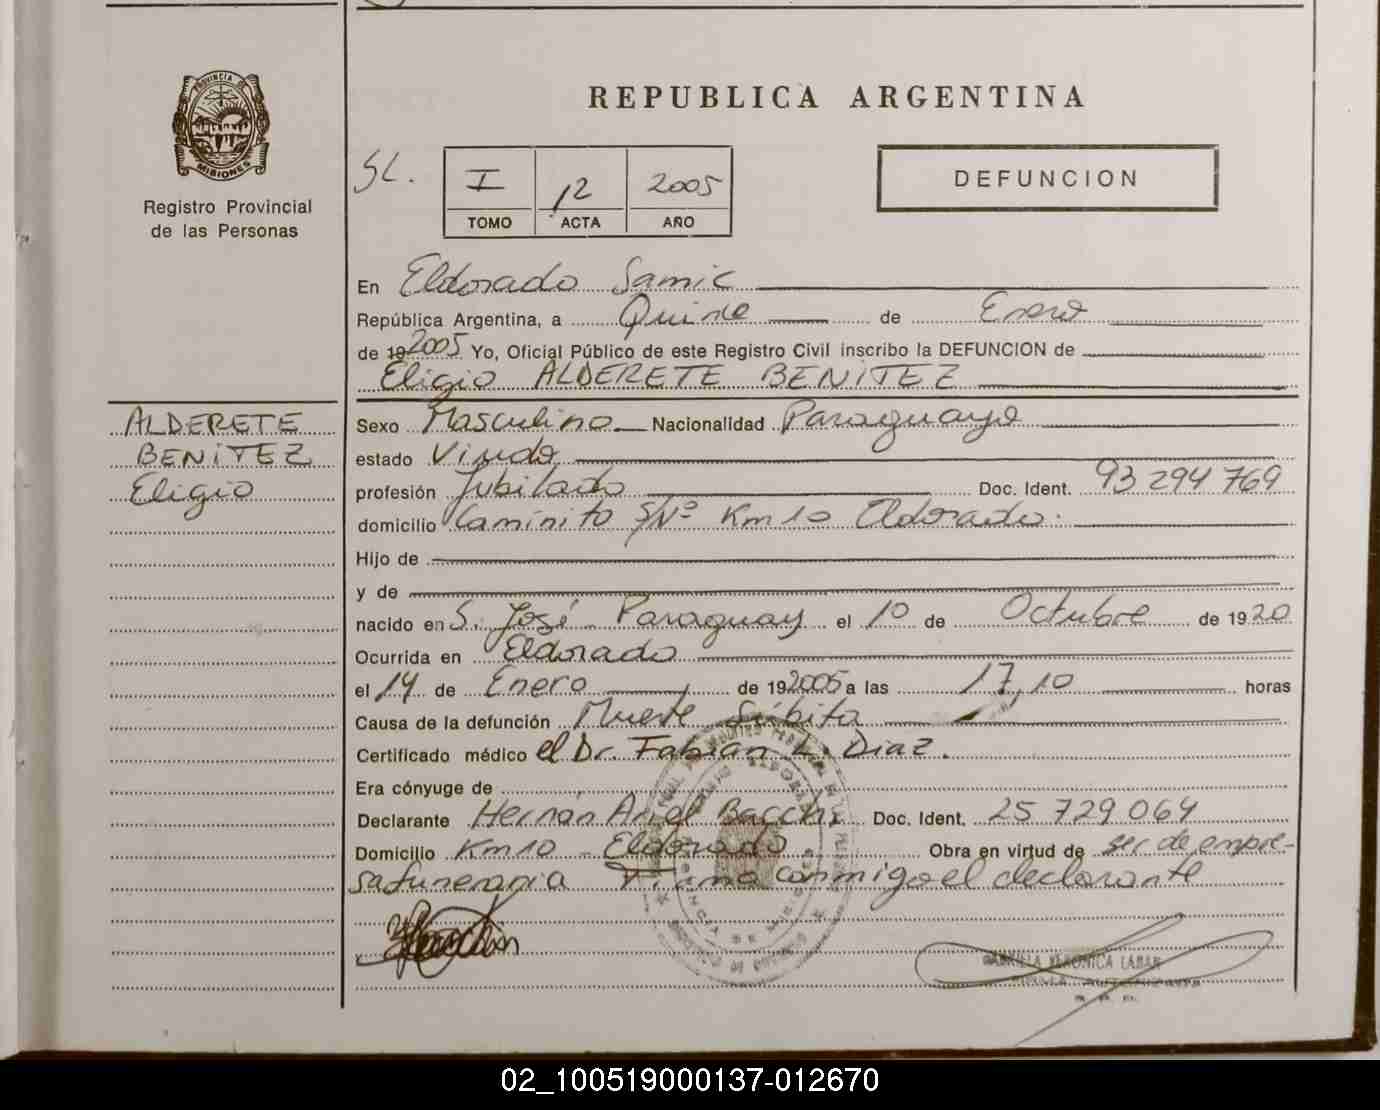 PROVINCIA DE
MISIONES
Registro Provincial
de las Personas
ALDERETE
BENITEZ
Eligio
REPUBLICA ARGENTINA
SL.
I 12 2005
TOMO ACTA AÑO
DEFUNCION
En Eldorado Samic
República Argentina, a Quince de Enero
de 19 2005 Yo, Oficial Público de este Registro Civil inscribo la DEFUNCION de
Eligio ALDERETE BENITEZ
Sexo Masculino Nacionalidad Paraguayo
estado Viudo
profesión Jubilado Doc. Ident. 93 294 769
domicilio Caminito S/Nº Km 10 Eldorado.
Hijo de
y de
nacido en S. José Paraguay el 10 de Octubre de 1920
Ocurrida en Eldorado
el 14 de Enero de 19 2005 a las 17,10 horas
Causa de la defunción Muerte Súbita
Certificado médico el Dr. Fabian L. Diaz.
Era cónyuge de
Declarante Hernán Ariel Bacchi Doc. Ident. 25 729 064
Domicilio Km 10 - Eldorado Obra en virtud de ser de empre-
sa funeraria Firma conmigo el declarante
VERONICA
02_100519000137-012670